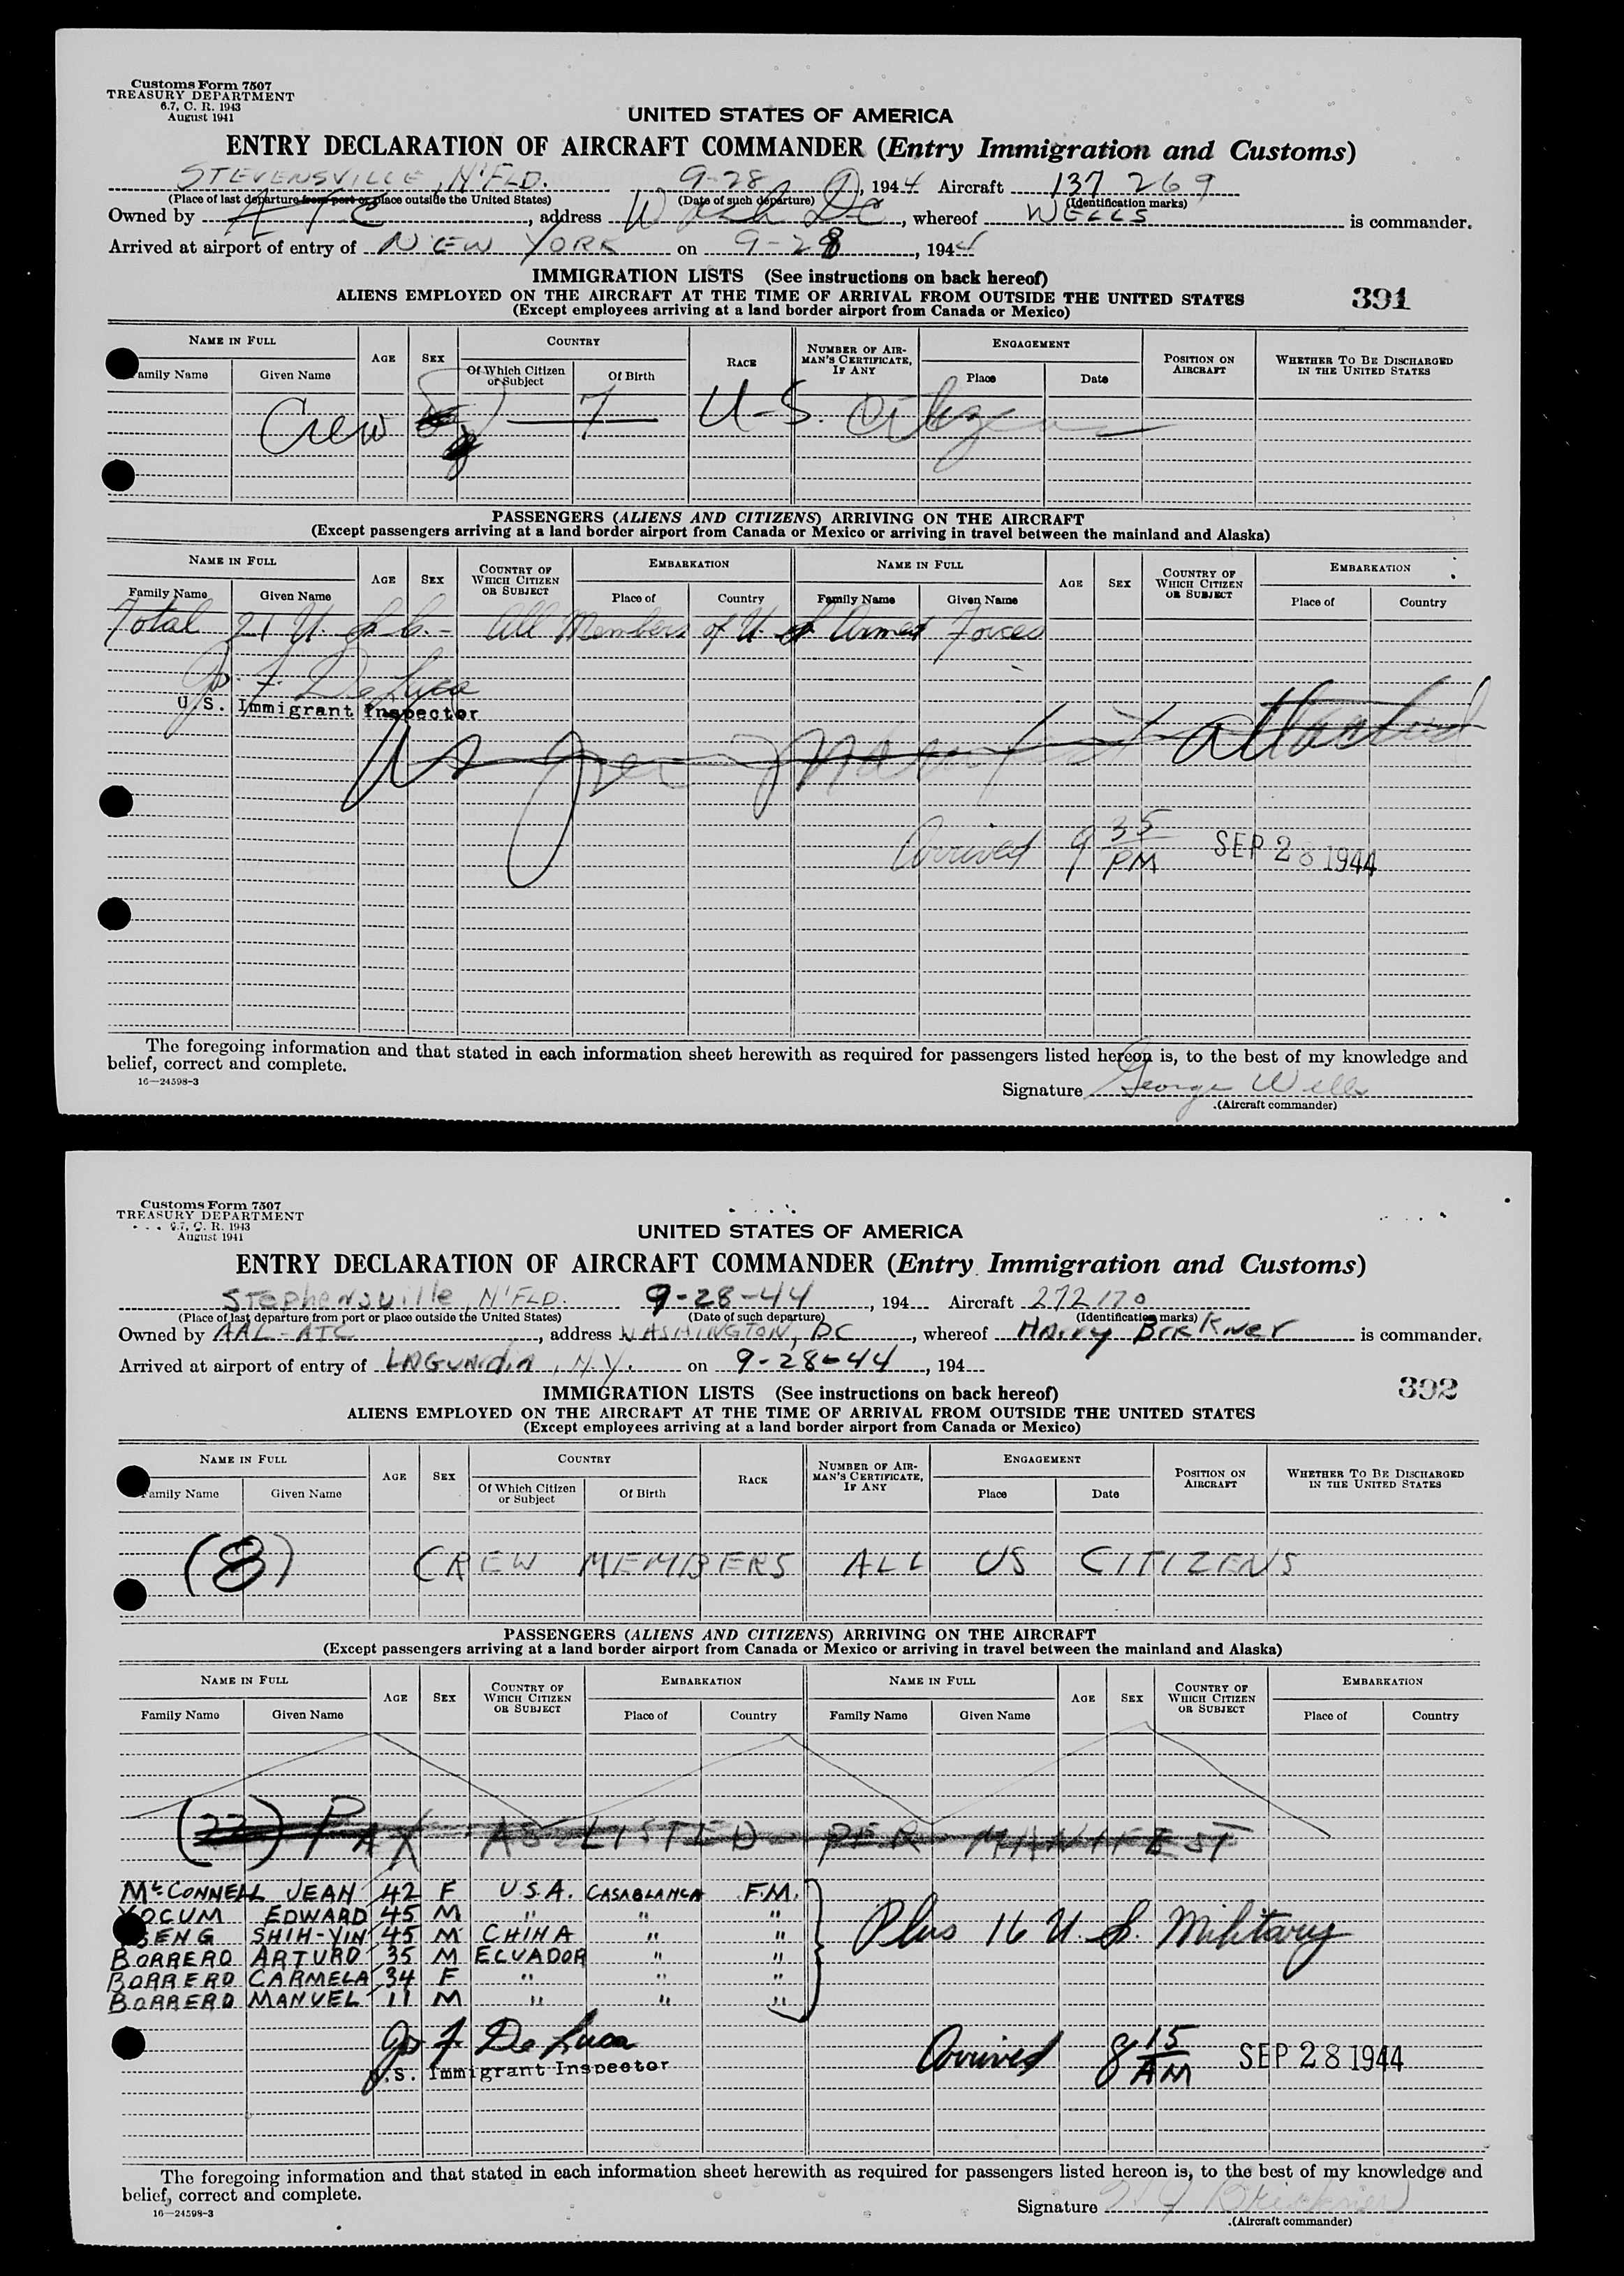 Customs Form 7507
TREASURY DEPARTMENT
6.7, C. R. 1943
August 1941
UNITED STATES OF AMERICA
ENTRY DECLARATION OF AIRCRAFT COMMANDER (Entry Immigration and Customs)
STEVENSVILLE, N'FLD. 9-28, 1944 Aircraft 137 269
(Place of last departure from port or place outside the United States) (Date of such departure) (Identification marks)
Owned by ATC, address Wash DC, whereof WELLS is commander.
Arrived at airport of entry of NEW YORK on 9-28, 1944
IMMIGRATION LISTS (See instructions on back hereof)
ALIENS EMPLOYED ON THE AIRCRAFT AT THE TIME OF ARRIVAL FROM OUTSIDE THE UNITED STATES
391
(Except employees arriving at a land border airport from Canada or Mexico)
NAME IN FULL AGE SEX COUNTRY RACE NUMBER OF AIRMAN'S CERTIFICATE, IF ANY ENGAGEMENT POSITION ON AIRCRAFT WHETHER TO BE DISCHARGED IN THE UNITED STATES
Family Name Given Name Of Which Citizen or Subject Of Birth Place Date
Crew 7 U-S. Citizens
PASSENGERS (ALIENS AND CITIZENS) ARRIVING ON THE AIRCRAFT
(Except passengers arriving at a land border airport from Canada or Mexico or arriving in travel between the mainland and Alaska)
NAME IN FULL AGE SEX COUNTRY OF WHICH CITIZEN OR SUBJECT EMBARKATION NAME IN FULL AGE SEX COUNTRY OF WHICH CITIZEN OR SUBJECT EMBARKATION
Family Name Given Name Place of Country Family Name Given Name Place of Country
Total 21 U.S.C. - All Members of U.S. Armed Forces
Jos. F. De Luca
U.S. Immigrant Inspector
As per Manifest attached
Arrived 9 35 PM SEP 28 1944
The foregoing information and that stated in each information sheet herewith as required for passengers listed hereon is, to the best of my knowledge and
belief, correct and complete.
16—24598-3
Signature George Wells
(Aircraft commander)
Customs Form 7507
TREASURY DEPARTMENT
6.7, C. R. 1943
August 1941
UNITED STATES OF AMERICA
ENTRY DECLARATION OF AIRCRAFT COMMANDER (Entry Immigration and Customs)
STephensville, N'FLD. 9-28-44, 194 Aircraft 272170
(Place of last departure from port or place outside the United States) (Date of such departure) (Identification marks)
Owned by AAL-ATC, address WASHINGTON, DC, whereof Harry Brkkner is commander.
Arrived at airport of entry of LAGUARDIA, N.Y. on 9-28-44, 194
IMMIGRATION LISTS (See instructions on back hereof)
392
ALIENS EMPLOYED ON THE AIRCRAFT AT THE TIME OF ARRIVAL FROM OUTSIDE THE UNITED STATES
(Except employees arriving at a land border airport from Canada or Mexico)
NAME IN FULL AGE SEX COUNTRY RACE NUMBER OF AIRMAN'S CERTIFICATE, IF ANY ENGAGEMENT POSITION ON AIRCRAFT WHETHER TO BE DISCHARGED IN THE UNITED STATES
Family Name Given Name Of Which Citizen or Subject Of Birth Place Date
(8) CREW MEMBERS ALL US CITIZENS
PASSENGERS (ALIENS AND CITIZENS) ARRIVING ON THE AIRCRAFT
(Except passengers arriving at a land border airport from Canada or Mexico or arriving in travel between the mainland and Alaska)
NAME IN FULL AGE SEX COUNTRY OF WHICH CITIZEN OR SUBJECT EMBARKATION NAME IN FULL AGE SEX COUNTRY OF WHICH CITIZEN OR SUBJECT EMBARKATION
Family Name Given Name Place of Country Family Name Given Name Place of Country
(22) PAX AS LISTED PER MANIFEST
McCONNELL JEAN 42 F U.S.A. CASABLANCA F.M.
YOCUM EDWARD 45 M " " "
SHIH-YIN 45 M CHINA " "
Plus 16 U.S. Military
BORRERO ARTURO 35 M ECUADOR " "
BORRERO CARMELA 34 F " " "
BORRERO MANUEL 11 M " " "
Jos F. De Luca
U.S. Immigrant Inspector
Arrived 8 15 AM SEP 28 1944
The foregoing information and that stated in each information sheet herewith as required for passengers listed hereon is, to the best of my knowledge and
belief, correct and complete.
16—24598-3
Signature
(Aircraft commander)